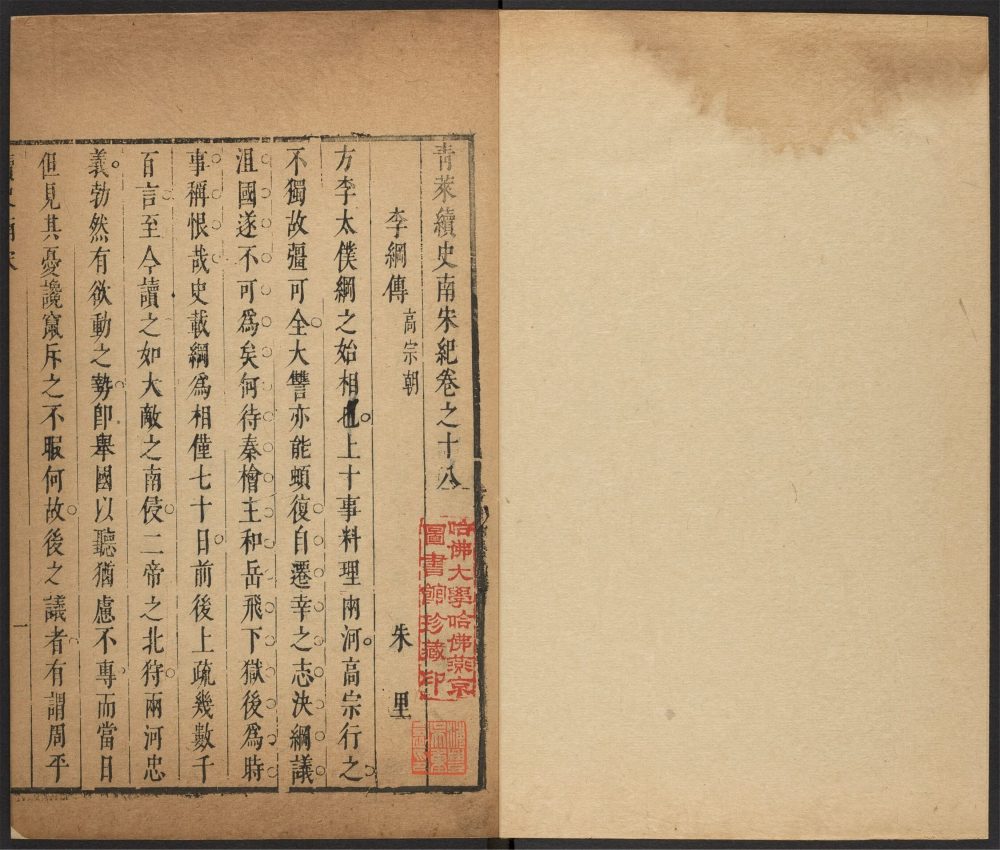 青萊續史南宋紀卷之十八
李綱傳 高宗朝 朱 里
方李太僕綱之始相也上十事料理兩河高宗行之
不獨故疆可全大讐亦能頓復自遷幸之志決綱議
沮國遂不可爲矣何待秦檜主和岳飛下獄後爲時
事稱恨哉史載綱爲相僅七十日前後上疏幾數千
百言至今讀之如大敵之南侵二帝之北狩兩河忠
義勃然有欲動之勢卽舉國以聽猶慮不專而當日
但見其憂讒竄斥之不暇何故後之議者有謂周平
一
哈佛大學哈佛燕京
圖書館珍藏印